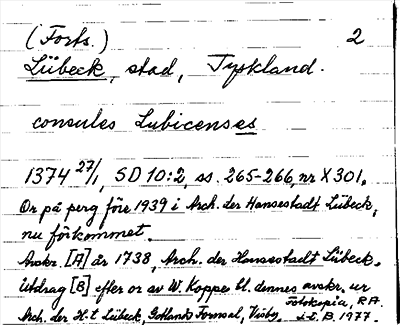 (Forts.) 2
Lübeck, stad, Tyskland.
consules Lubicenses
1374 27/1, SD 10:2, ss. 265-266, nr X 301.
Or på perg före 1939 i Arch. der Hansestadt Lübeck,
nu förkommet.
Avskr. [A] år 1738, Arch. der Hansestadt Lübeck.
Utdrag [B] efter or av W. Koppe bl. dennes avskr. ur
Arch. der H.t Lübeck, Gotlands Fornsal, Visby. Fotokopia, RA.
i.t. B. 1977.